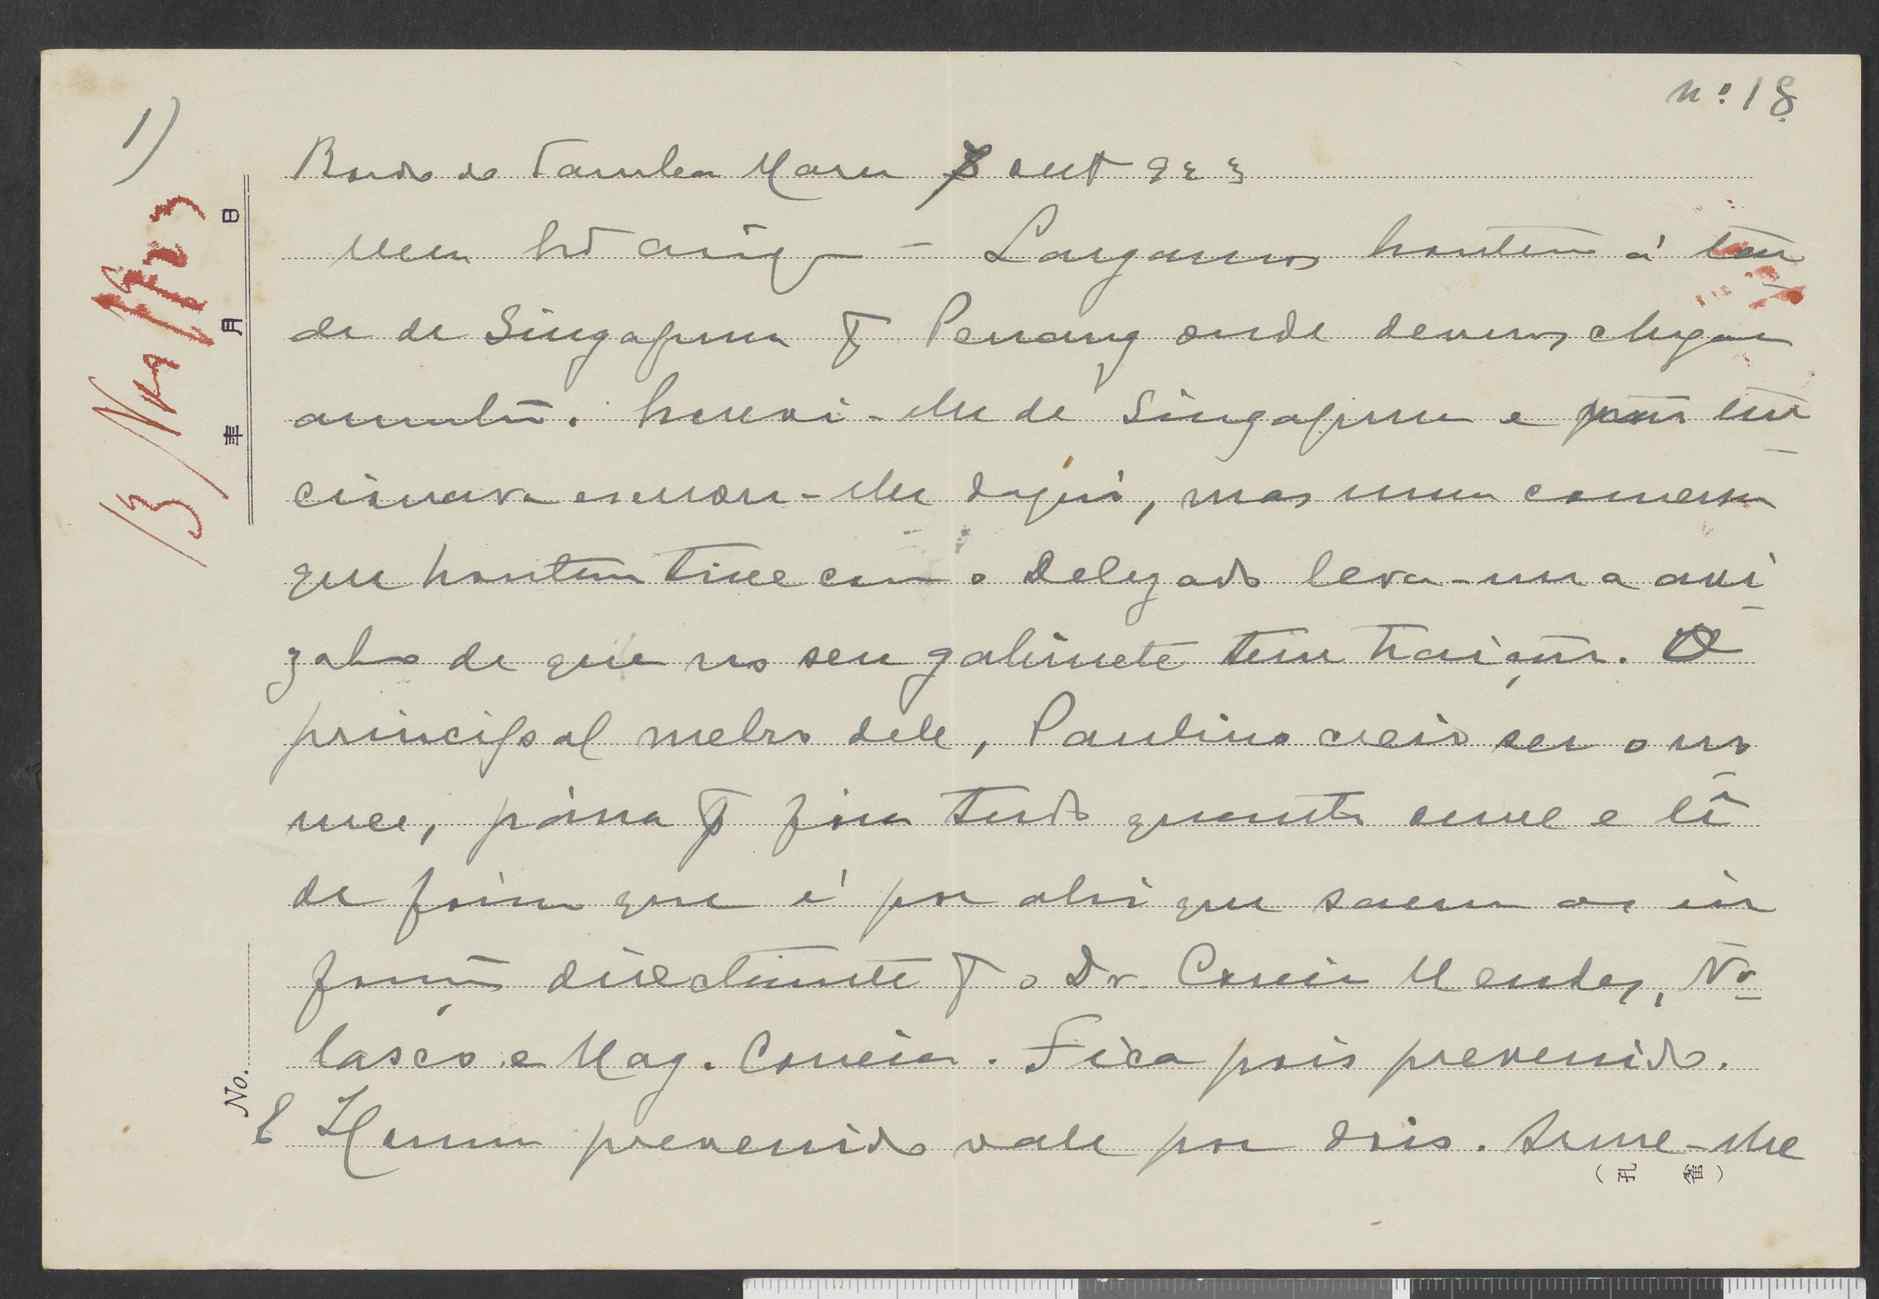 nº 18
1)
Bordo do Tamba Maru 8 out 923
Meu bō amigo – Largamos hontem á tar
de de Singapura pª Penang onde devemos chegar
amanhã. Escrevi-lhe de Singapura e não ten
cionava escrever-lhe daqui, mas uma conversa
que hontem tive com o Delgado leva-me a avi
zal-o de que no seu gabinete tem traição. O
principal melro dele, Paulino creio ser o no
me, passa pª fora tudo quanto ouve e lê
de forma que é por ahi que saem as in
formações directamente pª o Dr. Correia Mendes, No
lasco e Mag. Correia. Fica pois prevenido.
E Homem prevenido vale por dois. Serve-lhe
日
月
年
No.
(孔 雀)